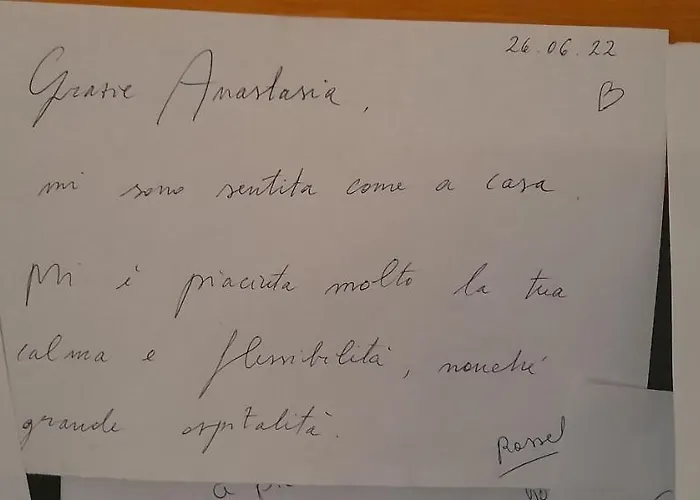 26.06.22
Grazie Anastasia,
mi sono sentita come a casa.
Mi è piaciuta molto la tua
calma e flessibilità, nonché
grande ospitalità.
Rossel